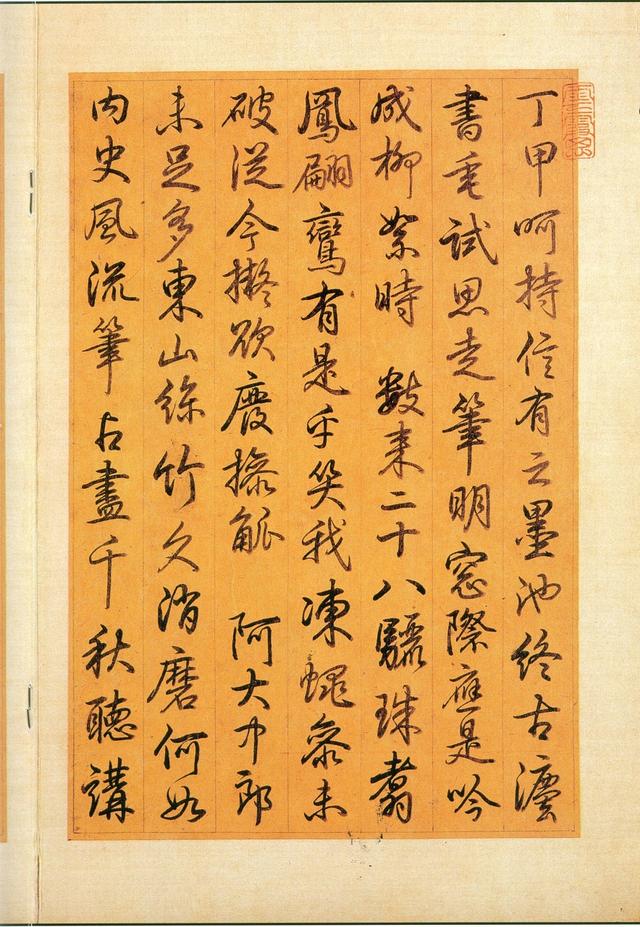 丁甲呵持信有之墨池終古灋
書垂試思走筆明窓際應是吟
成柳絮時 數來二十八驪珠翥
鳳翩鸞有是乎笑我凍蠅參未
破從今擬欲廢操觚 阿大中郎
未足多東山絲竹久消磨何如
內史風流筆占盡千秋聽講